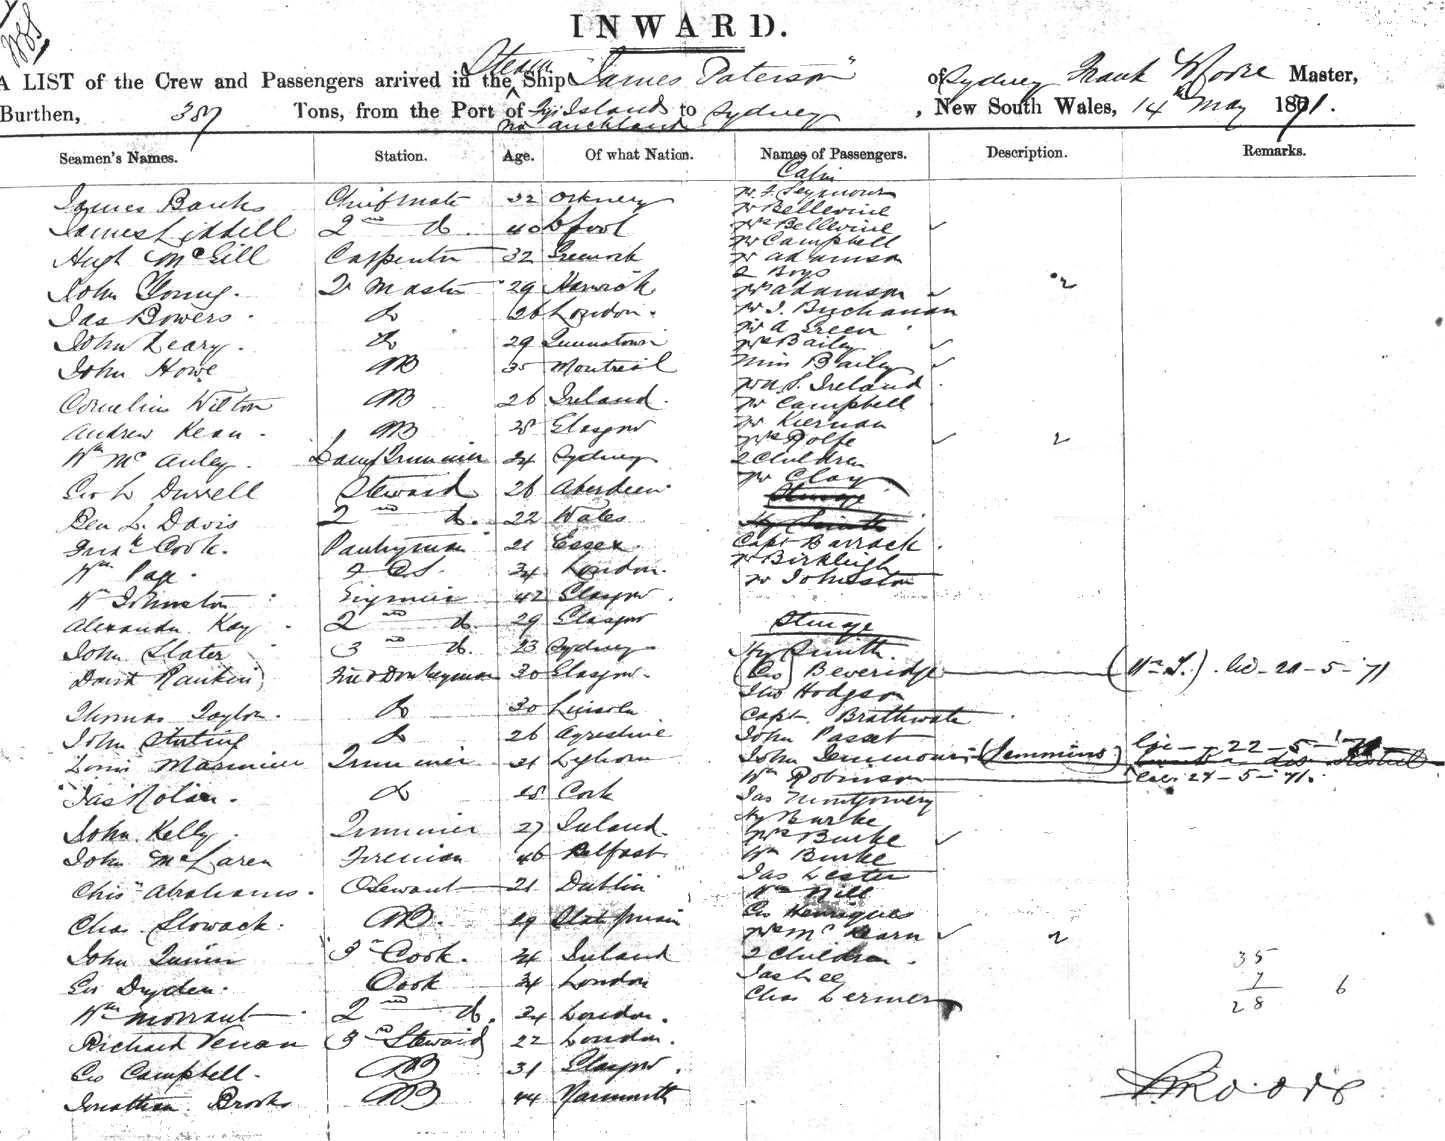 INWARD.
A LIST of the Crew and Passengers arrived in the Steam Ship "James Paterson" of Sydney Frank Moore Master,
Burthen, 387 Tons, from the Port of Fiji Islands via Auckland to Sydney, New South Wales, 14th May 1871.
Seamen's Names. Station. Age. Of what Nation. Names of Passengers. Description. Remarks.
Cabin
James Banks Chief Mate 32 Orkney Mr Seymour
Mr Bellevine
James Liddell 2nd do. 40 L'pool Mrs Bellevine
Mr Campbell
Hugh McGill Carpenter 32 Greenock Mr Adamson
2 Boys 2
John Young. Qr Master 29 Harwich Mrs Adamson
Mr J. Buchanan
Jas Bowers. do 26 London. Mr A Green
John Leary. do 29 Queenstown Mrs Baily
John Howe AB 35 Montreal Miss Baily
Mr S. Ireland
Cornelius Wilton AB 26 Ireland. Mr Campbell
Mr Kiernan
Andrew Kean. AB 38 Glasgow Mrs Rolfe 2
Wm McAuley. Lamp Trimmer 24 Sydney 2 Children
Mr Clay
Geo L Durrell Steward 26 Aberdeen Steerage
Ben L. Davis 2nd do. 22 Wales Hy Smith
Frank Cook. Pantryman 21 Essex. Capt Barrack
Mr Birkleigh
Wm Pax. F.C.S. 34 London. Mr Johnston
W Johnston Engineer 42 Glasgow.
Alexander Kay 2nd do 29 Glasgow Steerage
John Slater 3rd do. 23 Sydney Hy Smith
David Rankin Fireo Donkeyman 30 Glasgow. (Geo) Beveridge (Wm T.) 20-5-71
Thos Hodgson
Thomas Taylor. do 30 Lincoln Capt. Brathwate
John do 26 Ayrshire John Passat
Louis Trimmer 21 John (Jemmins) 22-5-71
Wm Robinson 24-5-71.
Jas Nolan. do 18 Cork Jas Montgomery
Hy Burke
John Kelly Trimmer 27 Ireland. Mrs Burke
John McLaren Fireman 46 Belfast Wm Burke
Jas Lester
Chis Abrahams. 21 Dublin Wm Nill
Geo Henriques
Chas. Slowack. AB. 29 Mrs McKearn 2
John Quinn 3rd Cook. 34 Ireland 2 Children.
Jas Lee
Geo Dryden. Cook 34 London Chas Lermer
35
7
28 6
Wm Morrant 2nd do. 24 London.
Richard 3rd Steward 22 London.
Geo Campbell. AB 31 Glasgow.
Jonathan Brooks AB 44 Yarmouth